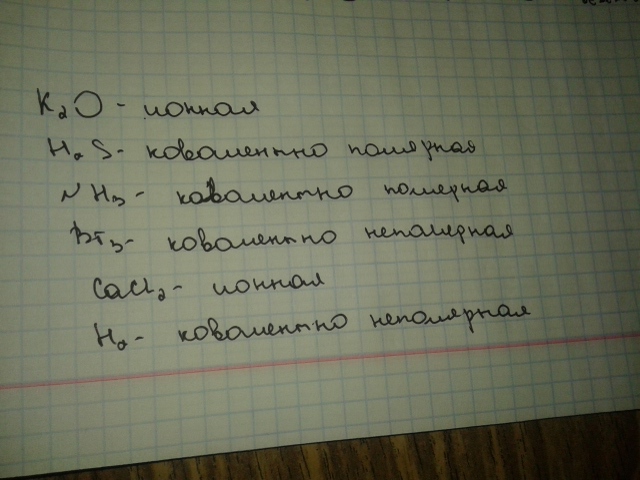 K₂O - ионная
H₂S - ковалентно полярная
NH₃ - ковалентно полярная
Br₃ - ковалентно неполярная
CaCl₂ - ионная
H₂ - ковалентно неполярная